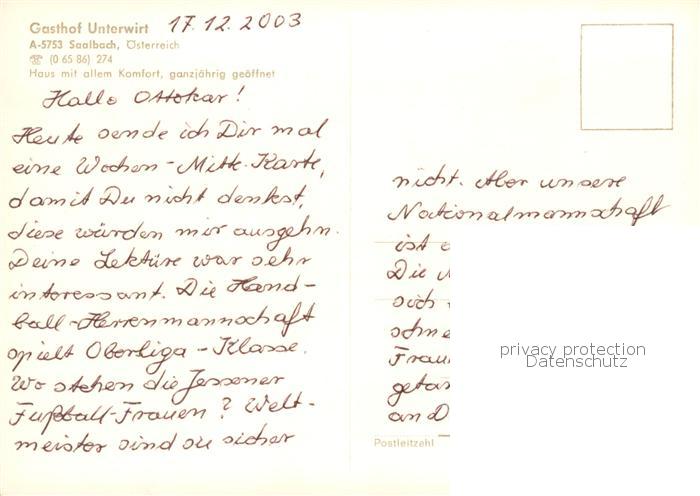 Gasthof Unterwirt 17.12.2003
A-5753 Saalbach, Österreich
☎ (0 65 86) 274
Haus mit allem Komfort, ganzjährig geöffnet
Hallo Ottokar!
Heute sende ich Dir mal
eine Wochen-Mitte-Karte,
damit Du nicht denkst,
diese würden mir ausgehn.
Deine Lektüre war sehr
interessant. Die Hand-
ball-Herrenmannschaft
spielt Oberliga-Klasse.
Wo stehen die Jessener
Fußball-Frauen? Welt-
meister sind sie sicher
nicht. Aber unsere
Nationalmannschaft
ist
Die
sich
schne
Frau
geta
an D
privacy protection
Datenschutz
Postleitzahl